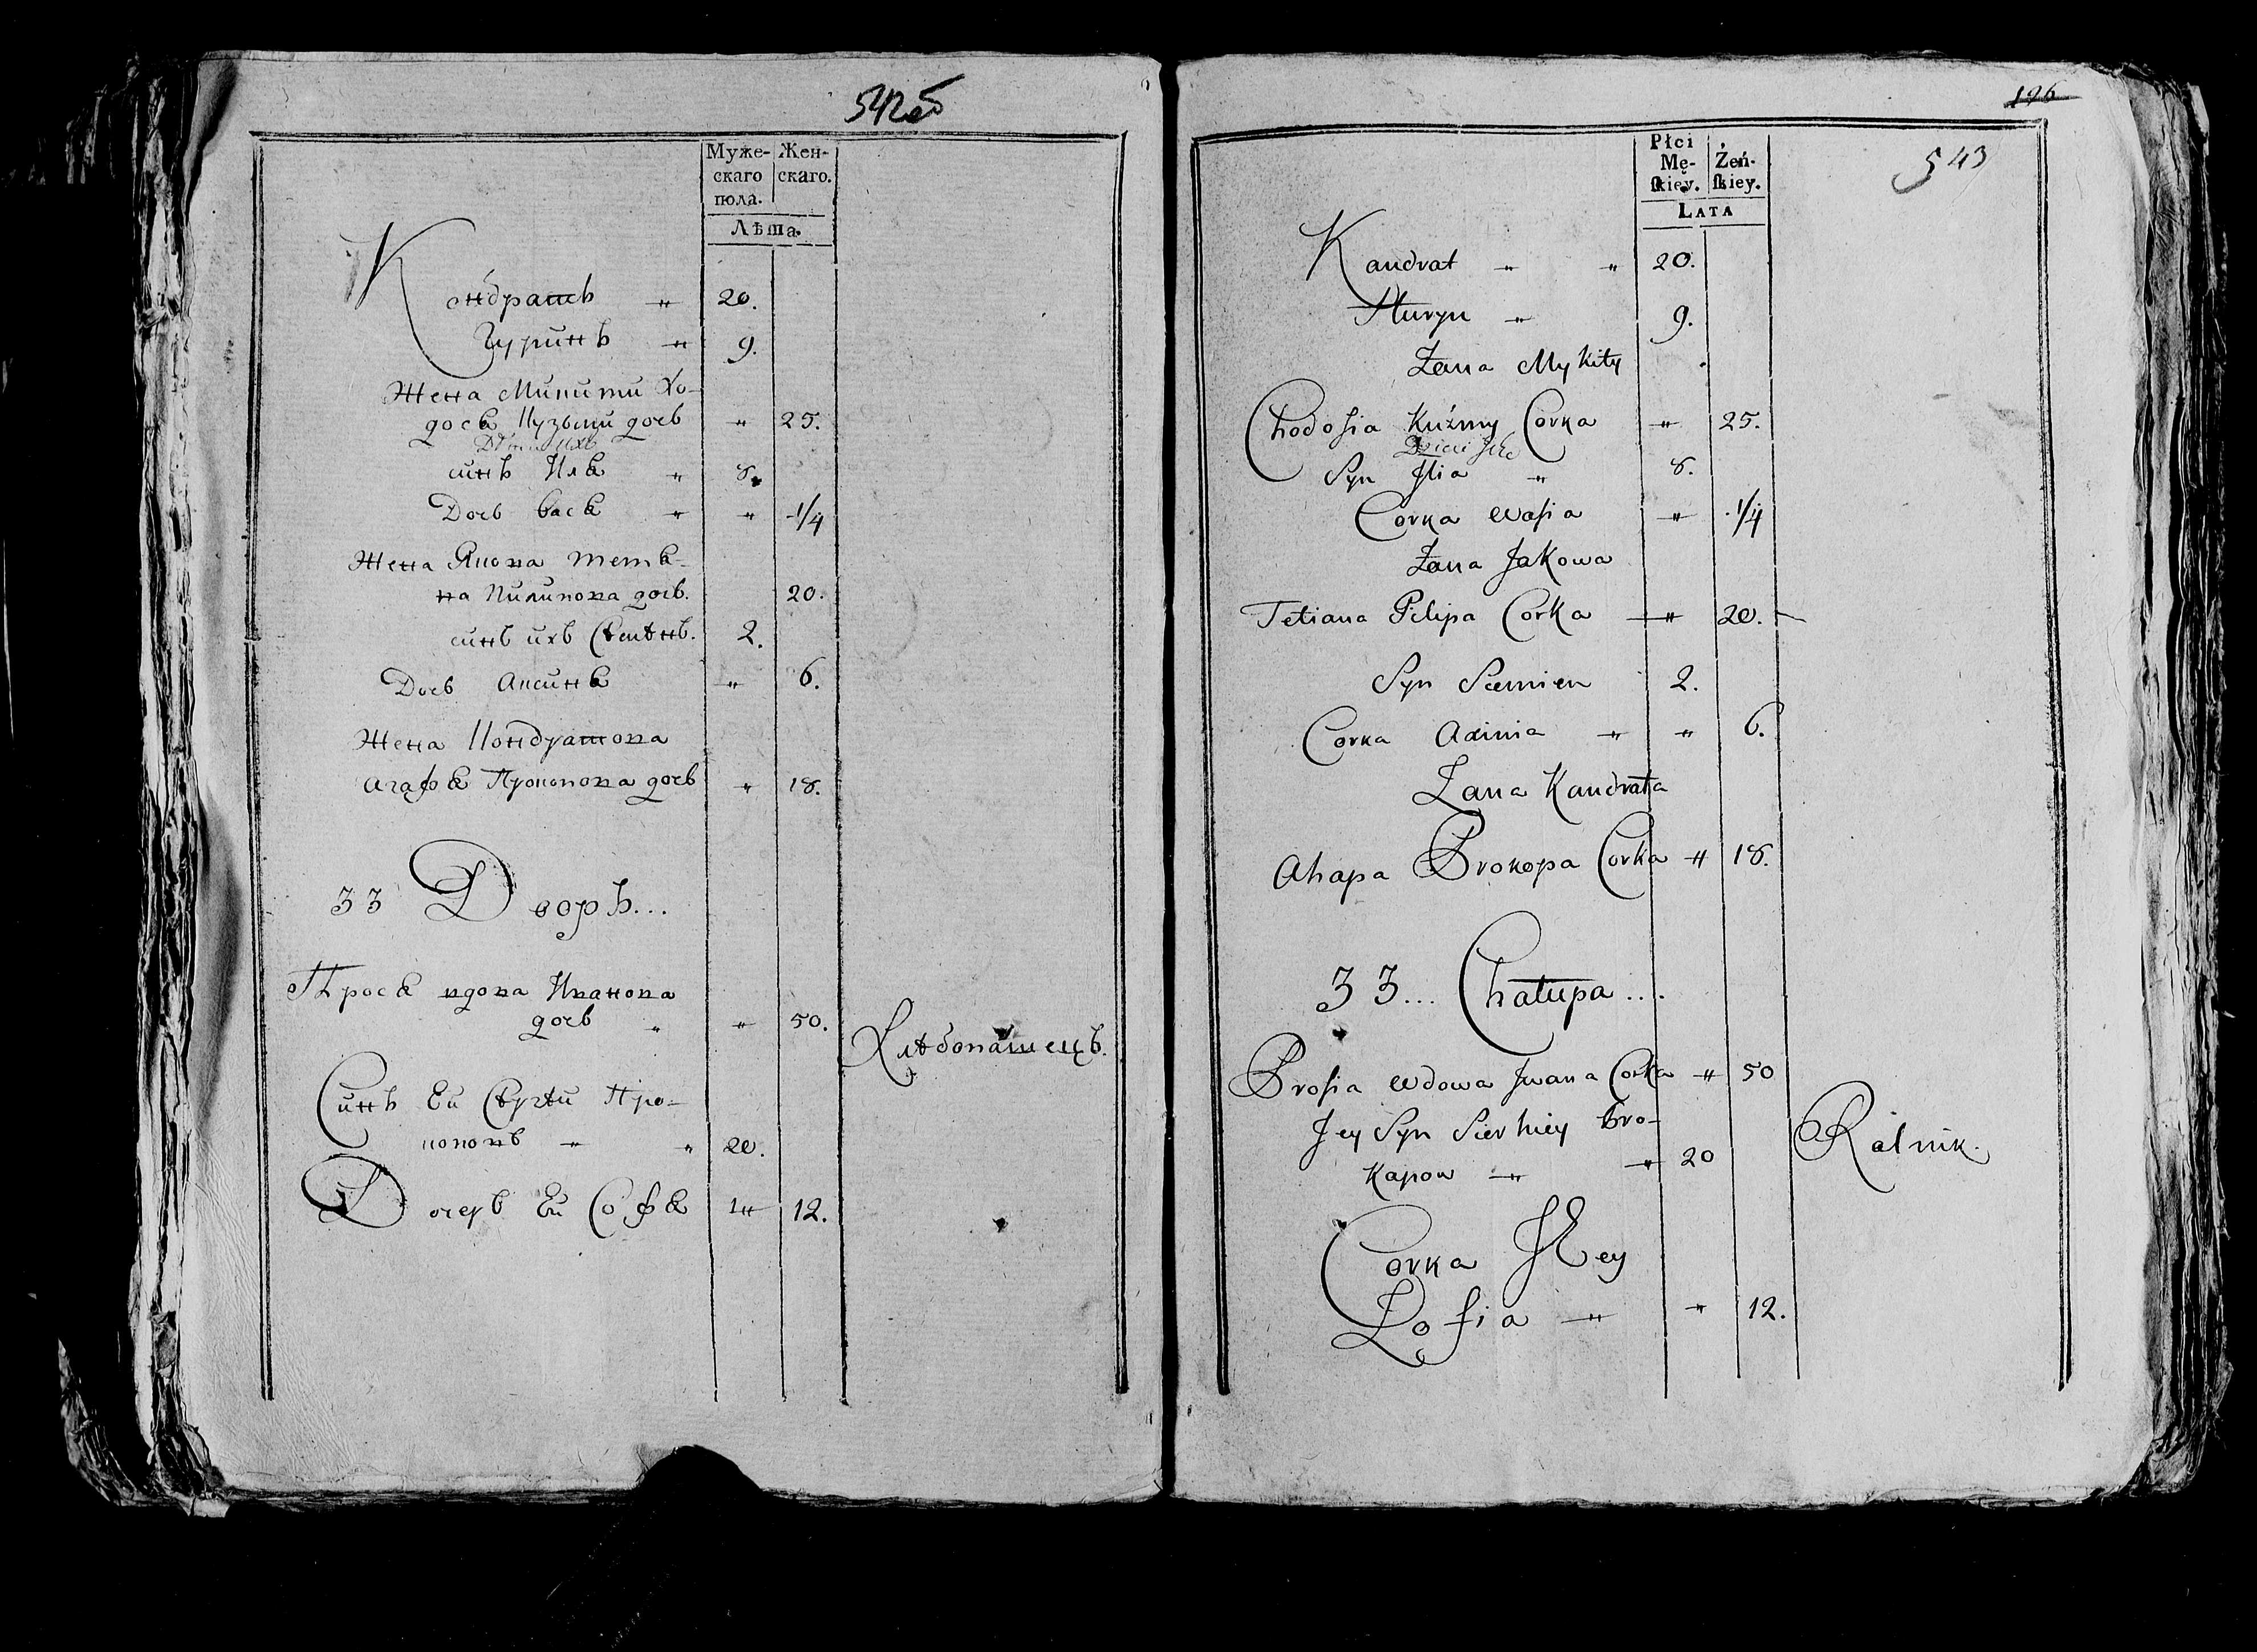 542об
Муже- Жен-
скаго скаго.
пола.
Лѣта.
Кондратъ " 20.
Гуринъ " 9.
Жена Микити Хо-
дося Кузьми дочь " 25.
Дѣти ихъ
синъ Иля " 8.
Дочь Вася " " 1/4
Жена Якова Тетя-
на Пилипова дочь. 20.
синъ ихъ Семѣнъ. 2.
Дочь Аксиня " 6.
Жена Кондратова
Агафя Прокопова дочь " 18.
33 Дворъ...
Прося вдова Иванова
дочь " " 50.
Хлѣбопашецъ.
Синъ Еи Сергѣи Про-
коповъ " " 20.
Дочерь Еи Софя " 12.
126
543
Płci
Mę- Żeń-
skiey. skiey.
LATA
Kandrat " " 20.
Huryn " 9.
Żana Mykity
Chodosia Kuźmy Corka " 25.
Dzieci Ich
Syn Ilia " 8.
Corka Wasia " 1/4
Żana Jakowa
Tetiana Pilipa Corka " 20.
Syn Siemien 2.
Corka Axinia " " 6.
Żana Kandrata
Ahapa Prokopa Corka " 18.
33... Chałupa...
Prosia Wdowa Iwana Corka " 50
Jey Syn Sierhiey Pro-
kapow " " 20
Rolnik.
Corka Jey
Zofia " " 12.